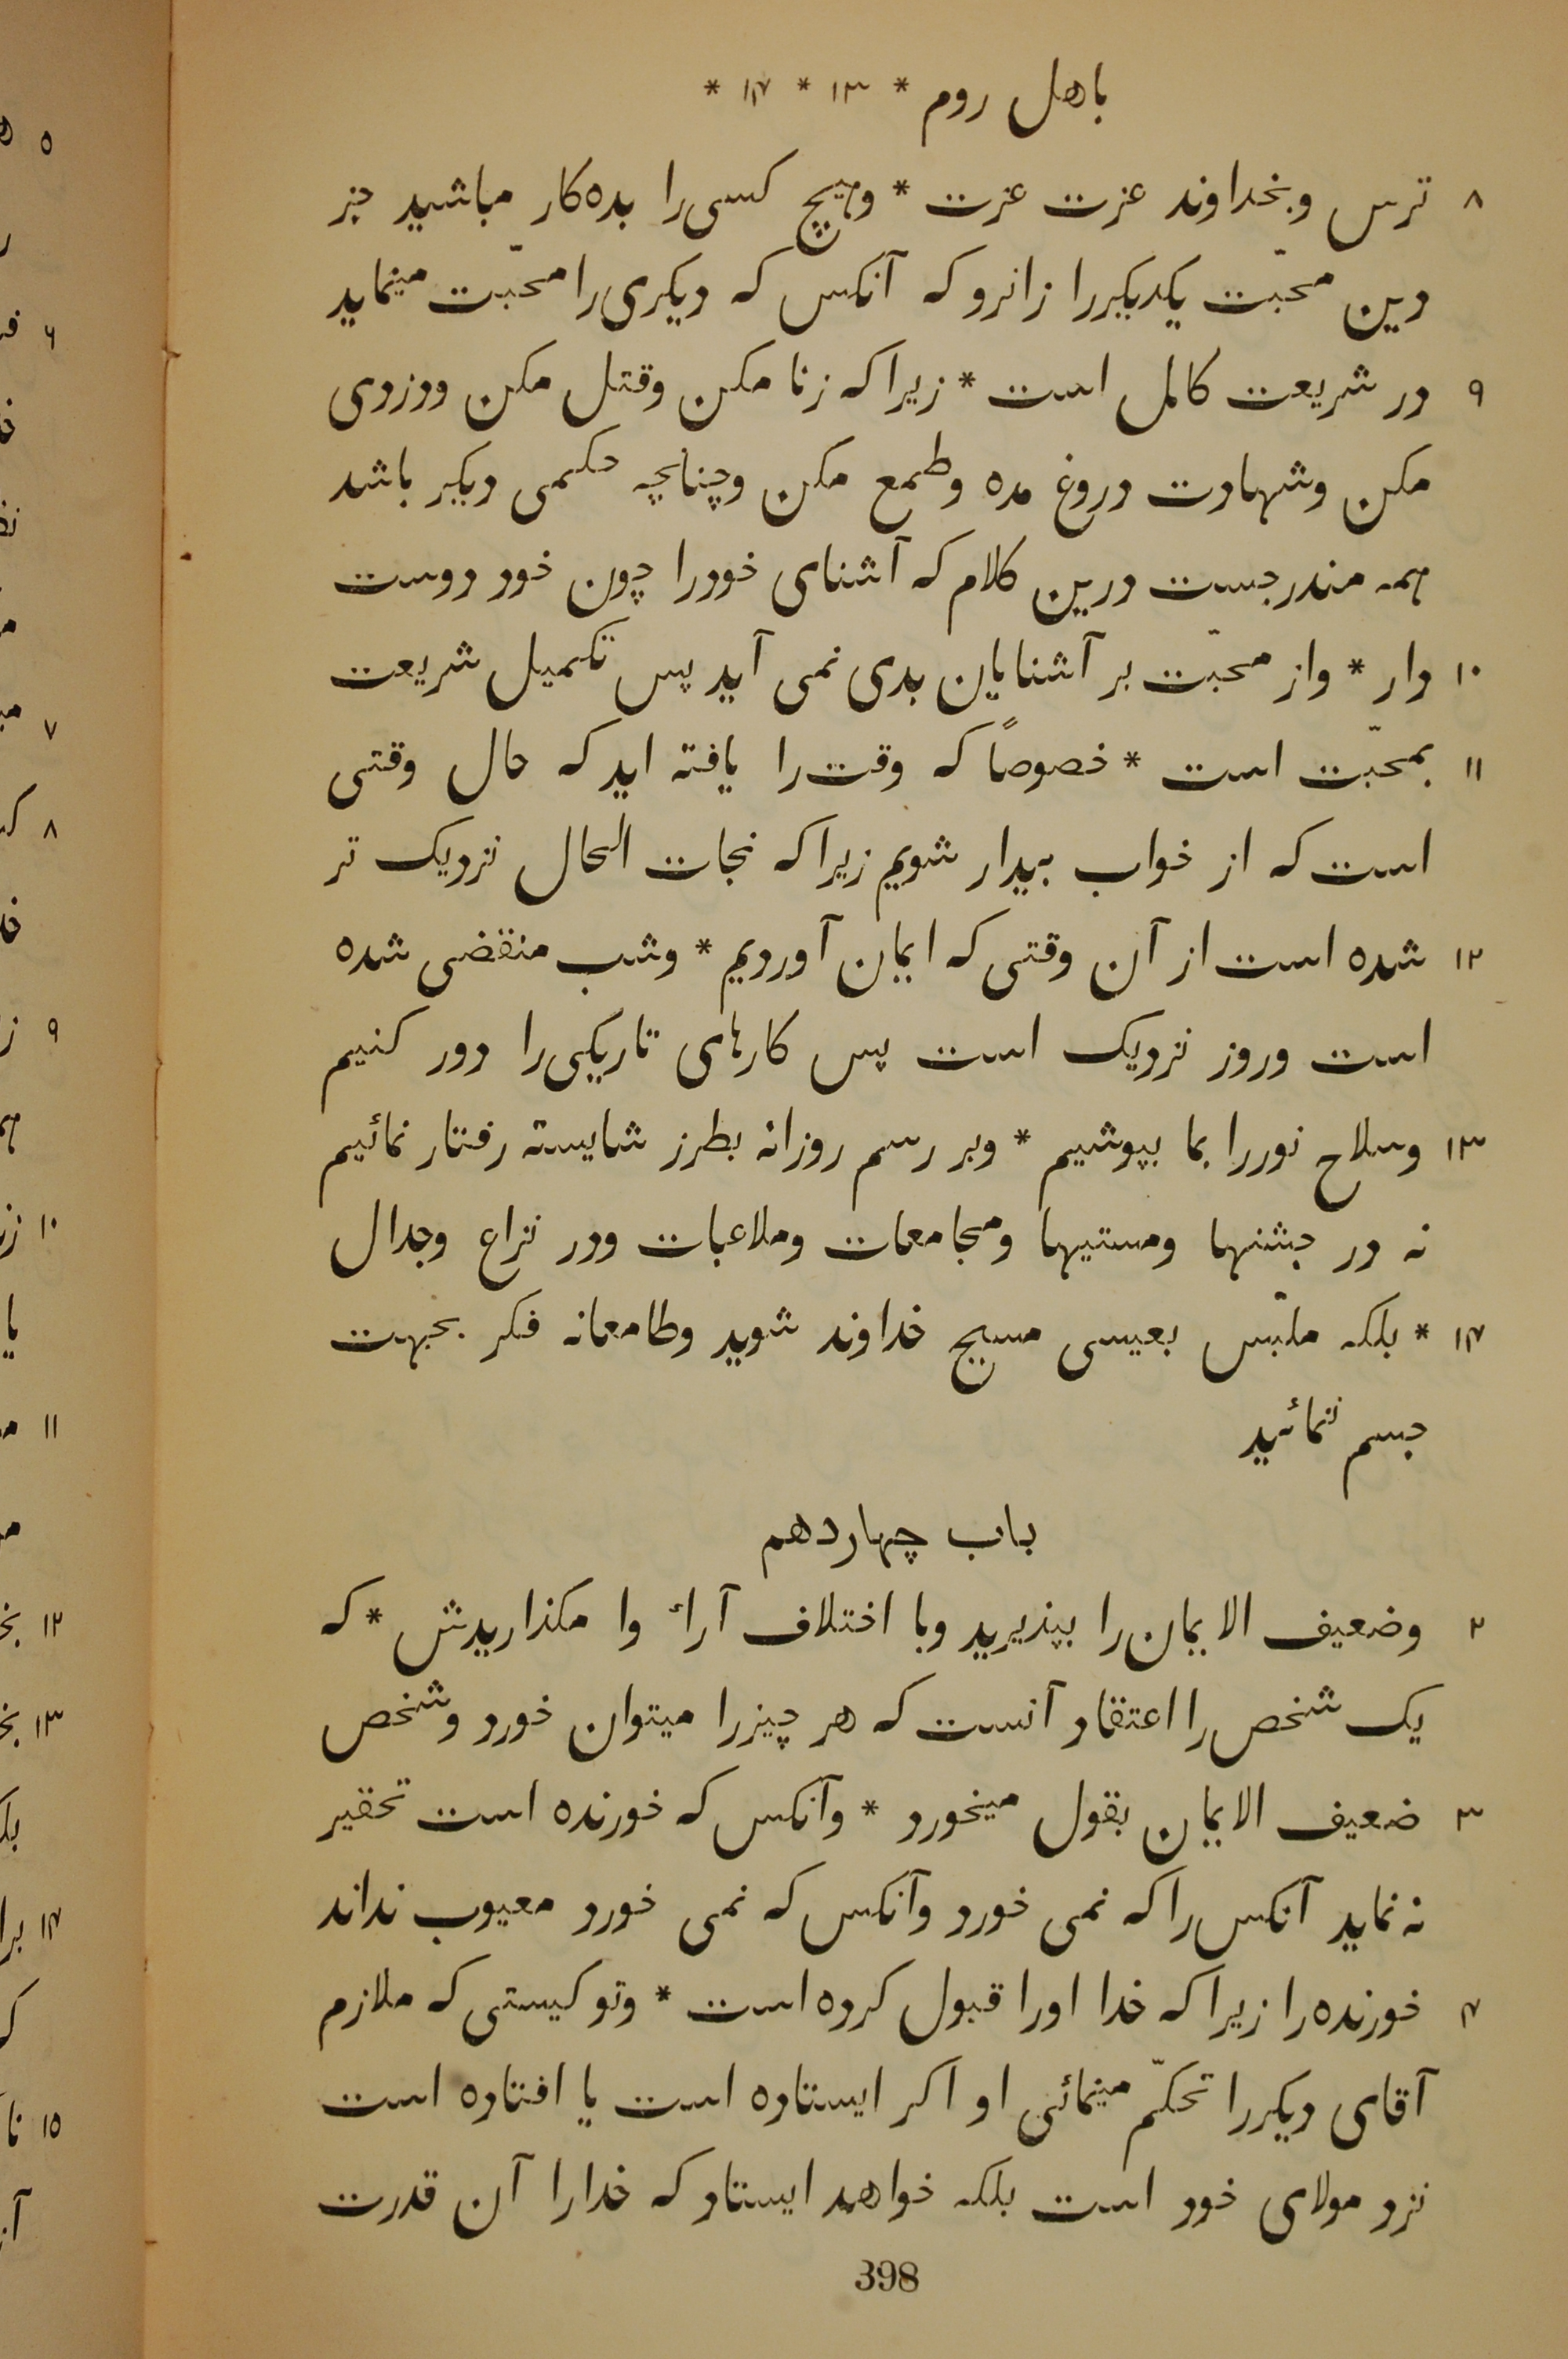 باهل روم * ۱۳ * ۱۴ *
۸ ترس وبخداوند عزت عزت * وهیچ کسی را بده‌کار مباشید جز
دین محبّت یکدیکررا زانرو که آنکس که دیکری را محبّت مینماید
۹ در شریعت کامل است * زیرا که زنا مکن وقتل مکن ودزدی
مکن وشهادت دروغ مده وطمع مکن وچنانچه حکمی دیکر باشد
همه مندرجست درین کلام که آشنای خودرا چون خود دوست
۱۰ دار * واز محبّت بر آشنایان بدی نمی آید پس تکمیل شریعت
۱۱ بمحبّت است * خصوصاً که وقت را یافته اید که حال وقتی
است که از خواب بیدار شویم زیرا که نجات الحال نزدیک تر
۱۲ شده است از آن وقتی که ایمان آوردیم * وشب منقضی شده
است وروز نزدیک است پس کارهای تاریکی را دور کنیم
۱۳ وسلاح نوررا بما بپوشیم * وبر رسم روزانه بطرز شایسته رفتار نمائیم
نه در جشنها ومستیها ومجامعات وملاعبات ودر نزاع وجدال
۱۴ * بلکه ملبّس بعیسی مسیح خداوند شوید وطامعانه فکر بجهت
جسم ننمائید
باب چهاردهم
۲ وضعیف الایمان را بپذیرید وبا اختلاف آراء وا مکذاریدش * که
یک شخص را اعتقاد آنست که هر چیزرا میتوان خورد وشخص
۳ ضعیف الایمان بقول میخورد * وآنکس که خورنده است تحقیر
نه نماید آنکس را که نمی خورد وآنکس که نمی خورد معیوب نداند
۴ خورنده را زیرا که خدا اورا قبول کرده است * وتو کیستی که ملازم
آقای دیکررا تحکّم مینمائی او اکر ایستاده است یا افتاده است
نزد مولای خود است بلکه خواهد ایستاد که خدارا آن قدرت
398